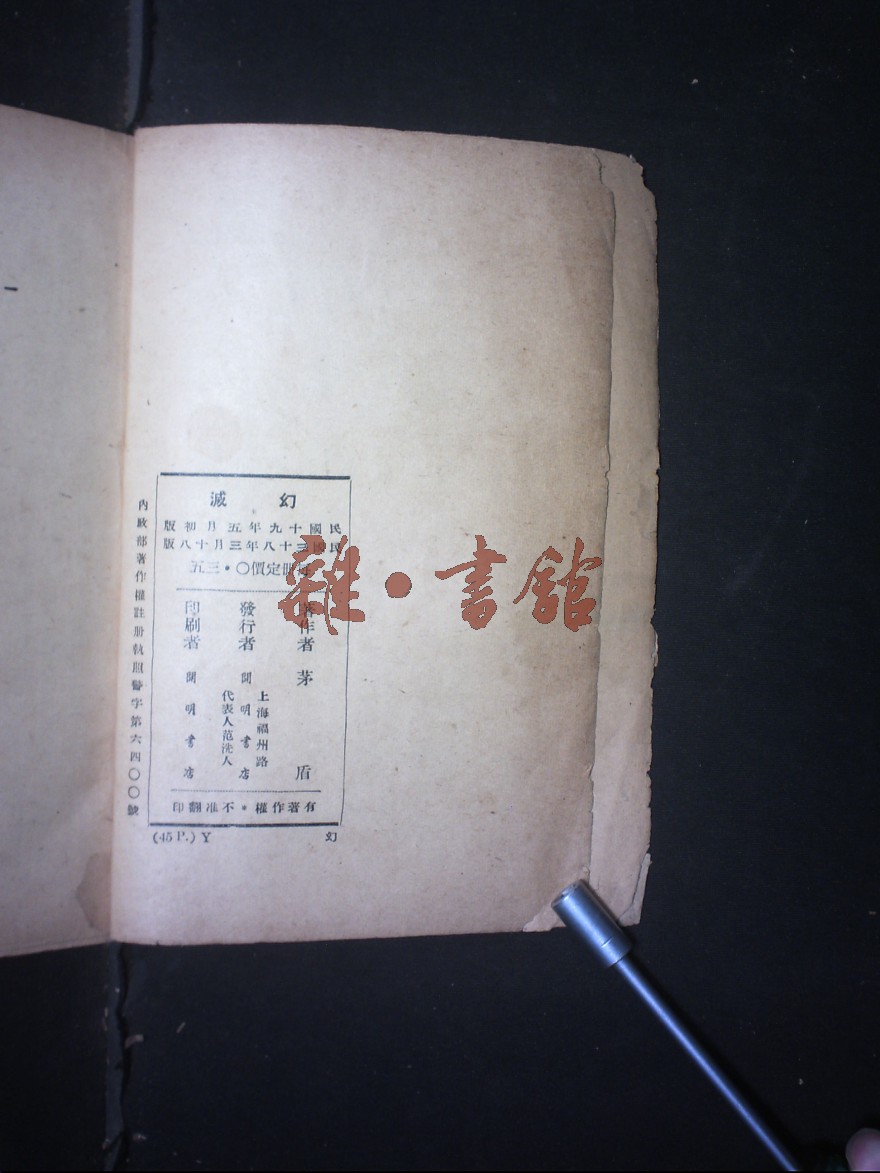 幻滅
民國十九年五月初版
民國三十八年三月十八版
每冊定價〇・三五
著作者 茅盾
上海福州路
發行者 開明書店
代表人范洗人
印刷者 開明書店
有著作權・不准翻印
(45 P.) Y 幻
內政部著作權註册執照警字第六四〇〇號
雜・書館